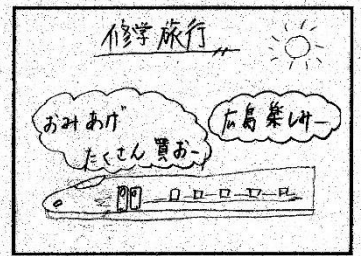 修学旅行
おみあげ
たくさん買おー
広島楽しみー